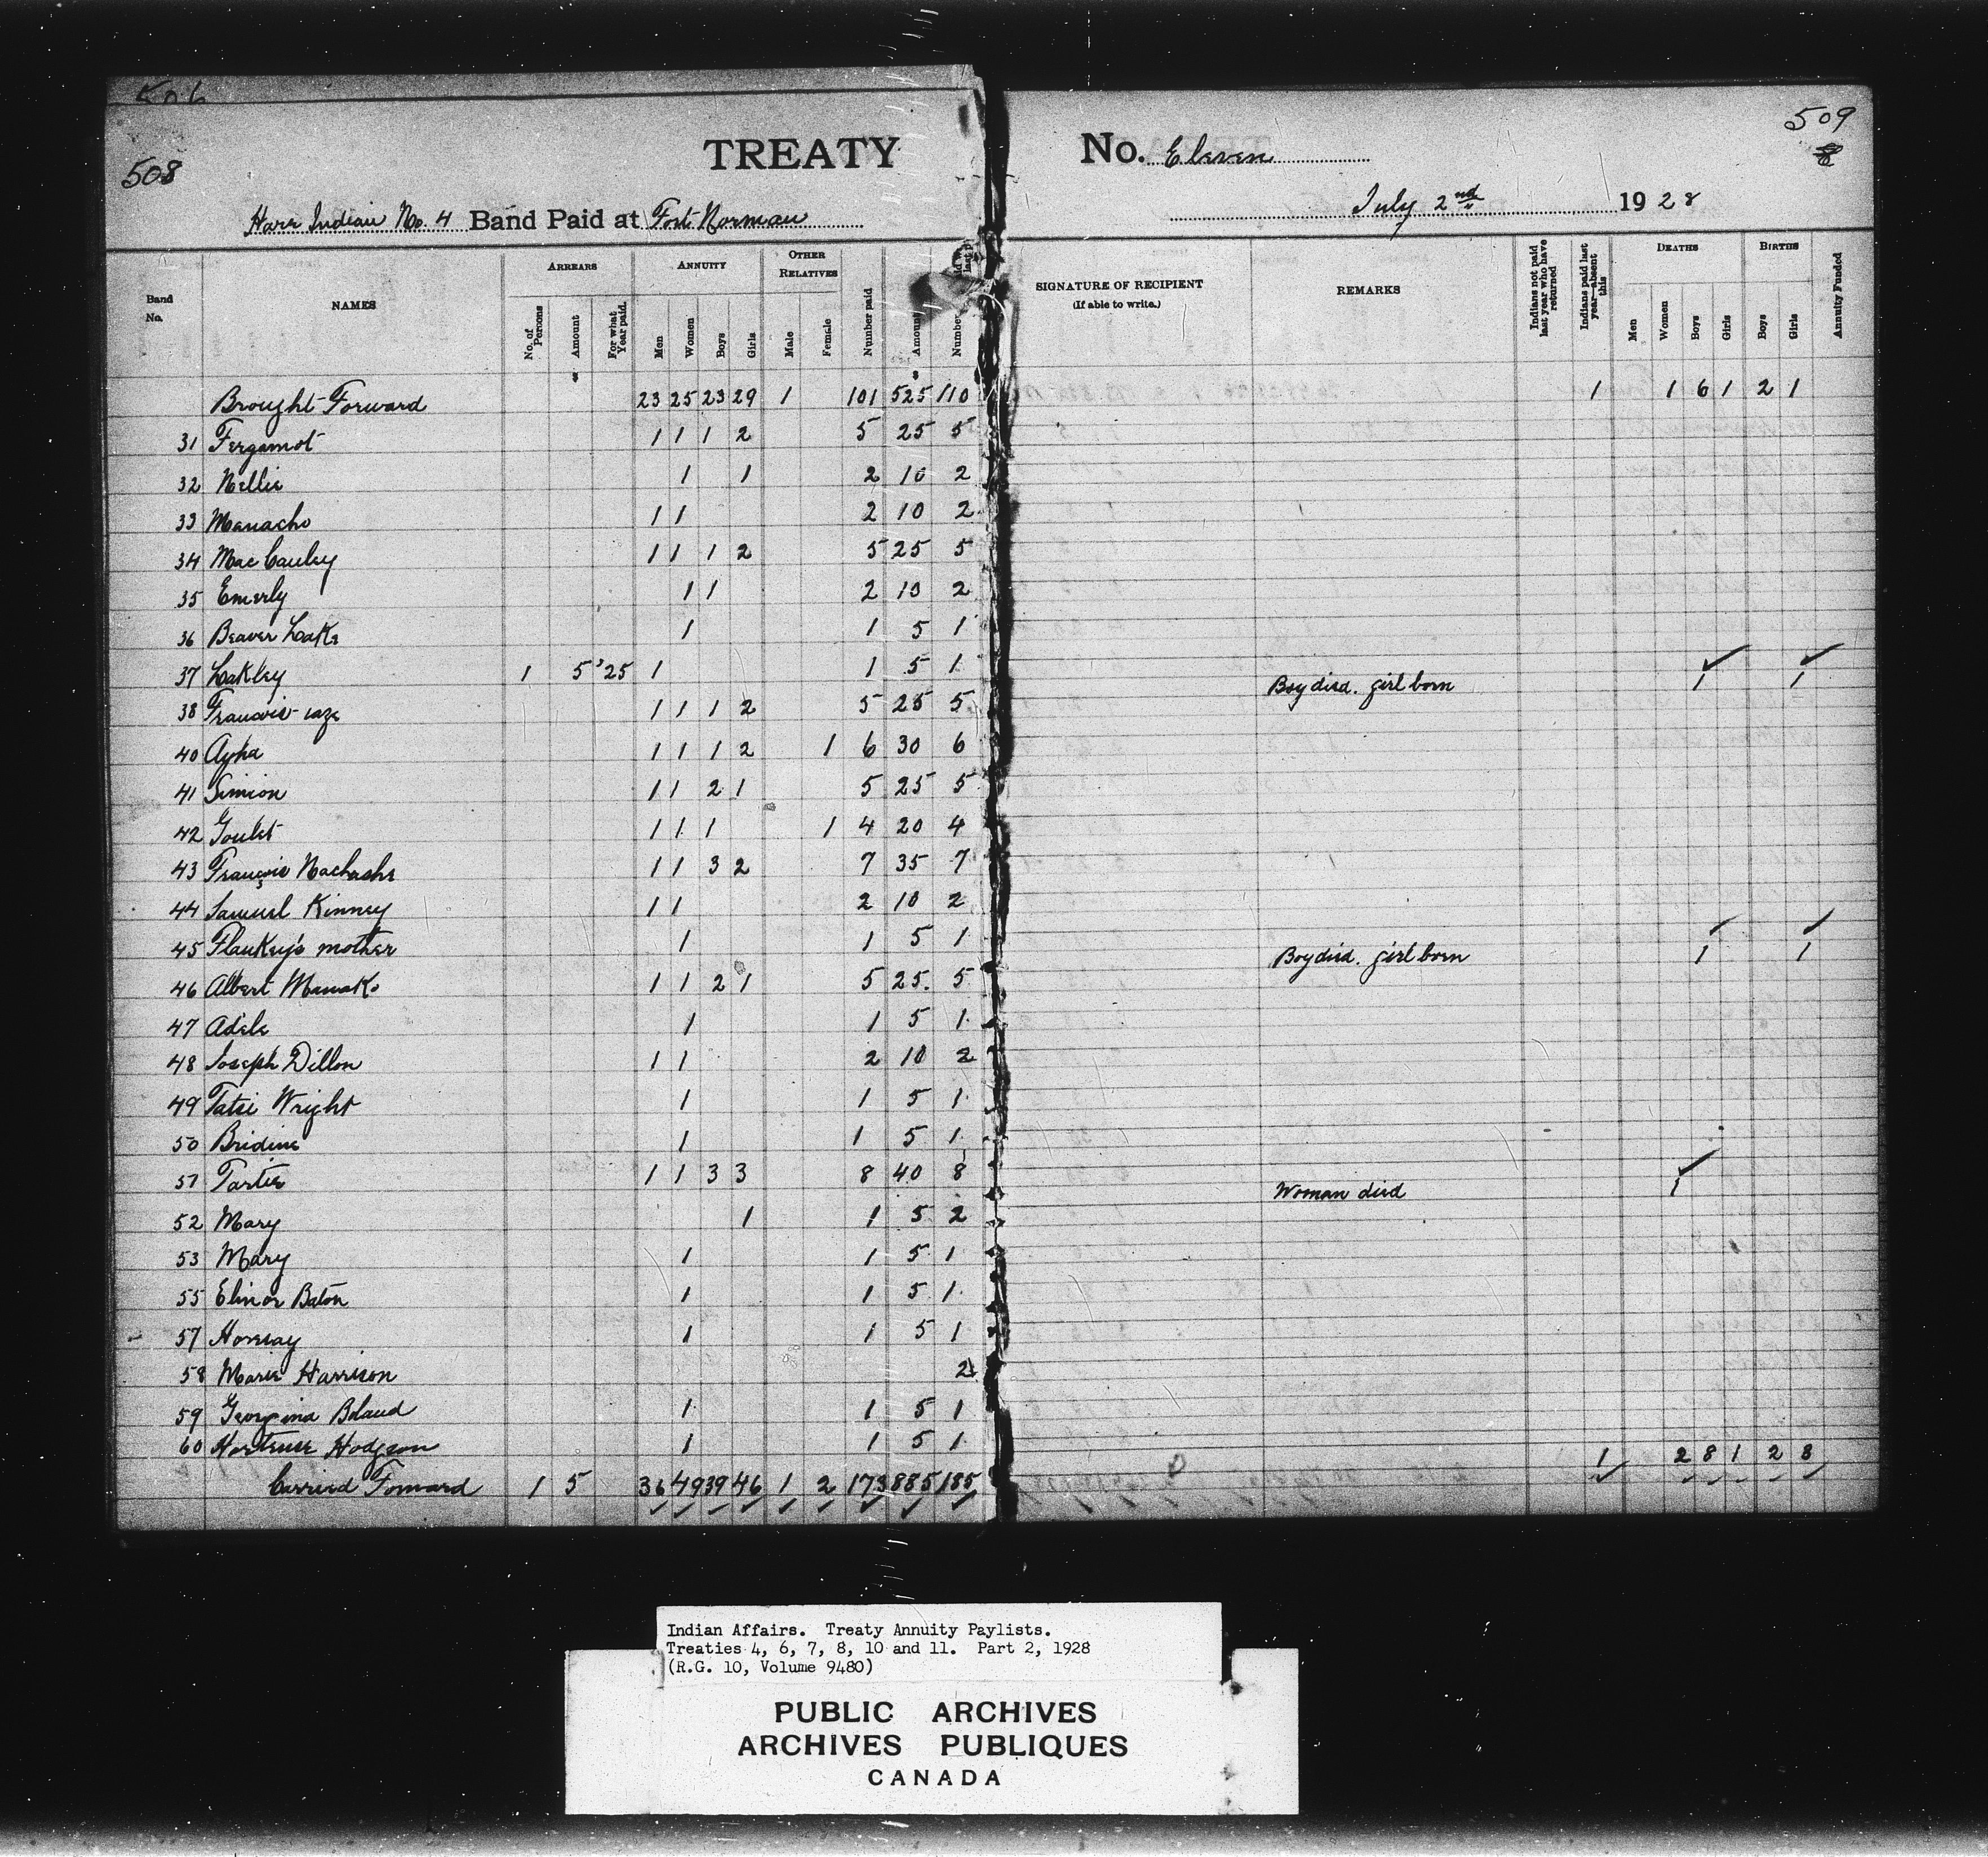 506
508
TREATY
No. Eleven
509
8
Hare Indian No. 4 Band Paid at Fort Norman
July 2nd 1928
Band No. NAMES ARREARS ANNUITY OTHER RELATIVES
No. of Persons Amount For what Year paid. Men Women Boys Girls Male Female Number paid Amount Number
SIGNATURE OF RECIPIENT (If able to write.) REMARKS Indians not paid last year who have returned Indians paid last year—absent this DEATHS Men Women Boys Girls BIRTHS Boys Girls Annuity Funded
Brought Forward 23 25 23 29 1 101 525 110 1 1 6 1 2 1
31 Fergamot 1 1 1 2 5 25 5
32 Nellie 1 1 2 10 2
33 Manacho 1 1 2 10 2
34 MacCauley 1 1 1 2 5 25 5
35 Emerly 1 1 2 10 2
36 Beaver Lake 1 1 5 1
37 Lakley 1 5 '25 1 1 5 1
38 Francois- 1 1 1 2 5 25 5 Boy died. girl born 1 1
40 Ayha 1 1 1 2 1 6 30 6
41 Simion 1 1 2 1 5 25 5
42 Goulet 1 1 1 1 4 20 4
43 Françoie Nachashe 1 1 3 2 7 35 7
44 Samuel Kinney 1 1 2 10 2
45 Flaukey's mother 1 1 5 1
46 Albert Manako 1 1 2 1 5 25. 5 Boy died. girl born 1 1
47 Adele 1 1 5 1
48 Joseph Dillon 1 1 2 10 2
49 Tatsi Wright 1 1 5 1
50 Bridine 1 1 5 1
51 Tartie 1 1 3 3 8 40 8
52 Mary 1 1 5 2 Woman died 1
53 Mary 1 1 5 1
55 Elinor Baton 1 1 5 1
57 Horesay 1 1 5 1
58 Marie Harrison 2
59 Georgina Blaud 1 1 5 1
60 Hortense Hodgson 1 1 5 1
Carried Forward 1 5 36 49 39 46 1 2 173 885 185 1 2 8 1 2 3
Indian Affairs. Treaty Annuity Paylists.
Treaties 4, 6, 7, 8, 10 and 11. Part 2, 1928
(R.G. 10, Volume 9480)
PUBLIC ARCHIVES
ARCHIVES PUBLIQUES
CANADA